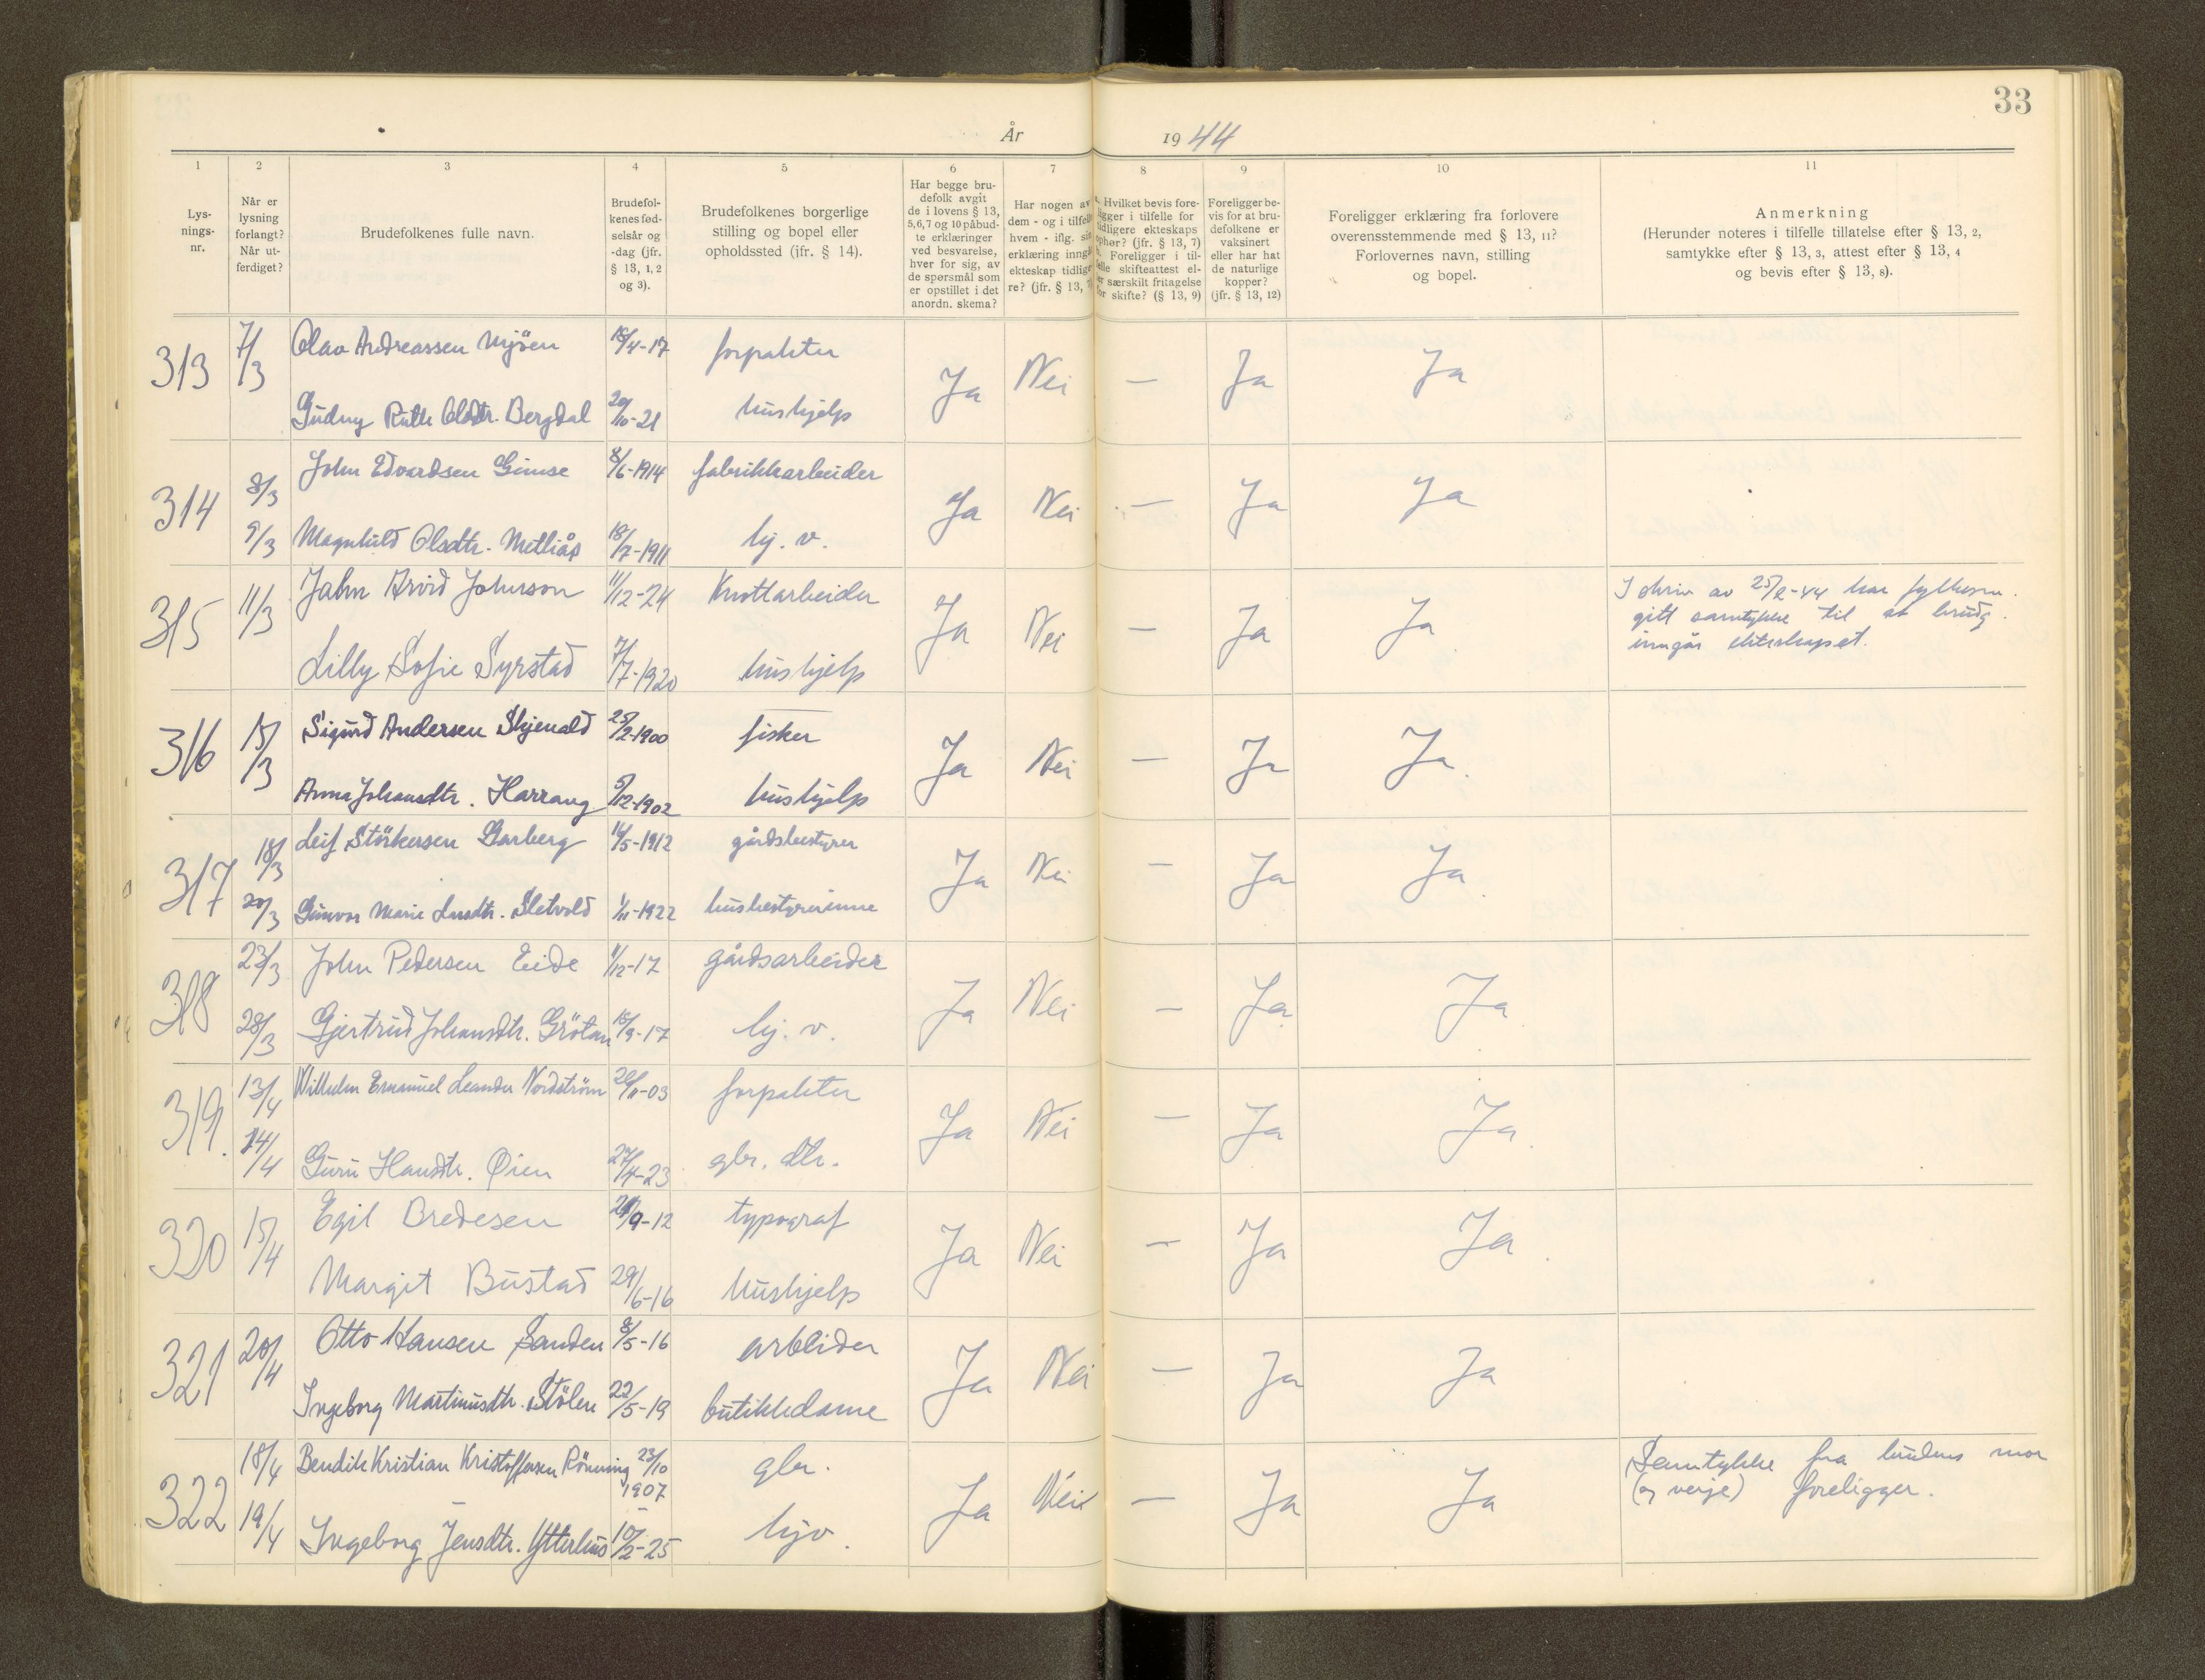 33
År 1944
1 2 3 4 5 6 7 8 9 10 11
Lys-
nings-
nr.
Når er
lysning
forlangt?
Når ut-
ferdiget?
Brudefolkenes fulle navn.
Brudefol-
kenes fød-
selsår og
-dag (jfr.
§ 13, 1, 2
og 3).
Brudefolkenes borgerlige
stilling og bopel eller
opholdssted (jfr. § 14).
Har begge bru-
defolk avgit
de i lovens § 13,
5,6,7 og 10 påbud-
te erklæringer
ved besvarelse,
hver for sig, av
de spørsmål som
er opstillet i det
anordn. skema?
Har nogen av
dem - og i tilfelle
hvem - iflg. sin
erklæring inngå
ekteskap tidlige-
re? (jfr. § 13, 7
Hvilket bevis fore-
ligger i tilfelle for
tidligere ekteskaps
ophør? (jfr. § 13, 7)
Foreligger i til-
felle skifteattest el-
ler særskilt fritagelse
for skifte? (§ 13, 9)
Foreligger be-
vis for at bru-
defolkene er
vaksinert
eller har hat
de naturlige
kopper?
(jfr. § 13, 12)
Foreligger erklæring fra forlovere
overensstemmende med § 13, 11?
Forlovernes navn, stilling
og bopel.
Anmerkning
(Herunder noteres i tilfelle tillatelse efter § 13, 2,
samtykke efter § 13, 3, attest efter § 13, 4
og bevis efter § 13, 8).
313 7/3 Olav Andreassen Mjöen 15/4-17 forpakter Ja Nei — Ja Ja
Gudny Ruth Olsdtr. Bergdal 20/10-21 hushjelp
314 8/3 John Edvardsen Gimse 8/6-1914 fabrikkarbeider Ja Nei — Ja Ja
9/3 Magnhild Olsdtr. Metliås 18/7-1911 hj. v.
315 11/3 John Arvid Johnson 11/12-24 Knottarbeider Ja Nei — Ja Ja I skriv av 25/2-44 har fylkesm.
gitt samtykke til at brudg.
inngår ekteskapet.
Lilly Sofie Syrstad 7/7-1920 hushjelp
316 15/3 Sigurd Andersen Skjenald 25/2-1900 fisker Ja Nei — Ja Ja
Anna Johansdtr. Harrang 5/12-1902 hushjelp
317 18/3 Leif Störkersen Garberg 14/5-1912 gårdsbestyrer Ja Nei — Ja Ja
20/3 Gunvor Marie Larsdtr. Sletvold 1/11-1922 husbestyrerinne
318 23/3 John Pedersen Eide 1/12-17 gårdsarbeider Ja Nei — Ja Ja
28/3 Gjertrud Johansdtr. Grötan 15/9-17 hj. v.
319. 13/4 Wilhelm Emanuel Leander Nordström 26/11-03 forpakter Ja Nei — Ja Ja
14/4 Guru Hansdtr. Øien 27/4-23 gbr. dtr.
320 15/4 Egil Bredesen 29/9-12 typograf Ja Nei — Ja Ja
Margit Bustad 29/6-16 Hushjelp
321 20/4 Otto Hansen Sanden 8/5-16 arbeider Ja Nei — Ja Ja
Ingeborg Martinusdtr. Stölen 22/5-19 butikkdame
322 18/4 Bendik Kristian Kristoffersen Rönning 23/10 1907 gbr. Ja Nei — Ja Ja Samtykke fra brudens mor
(og verje) foreligger.
19/4 Ingeborg Jensdtr. Ytterhus 10/2-25 hjv.